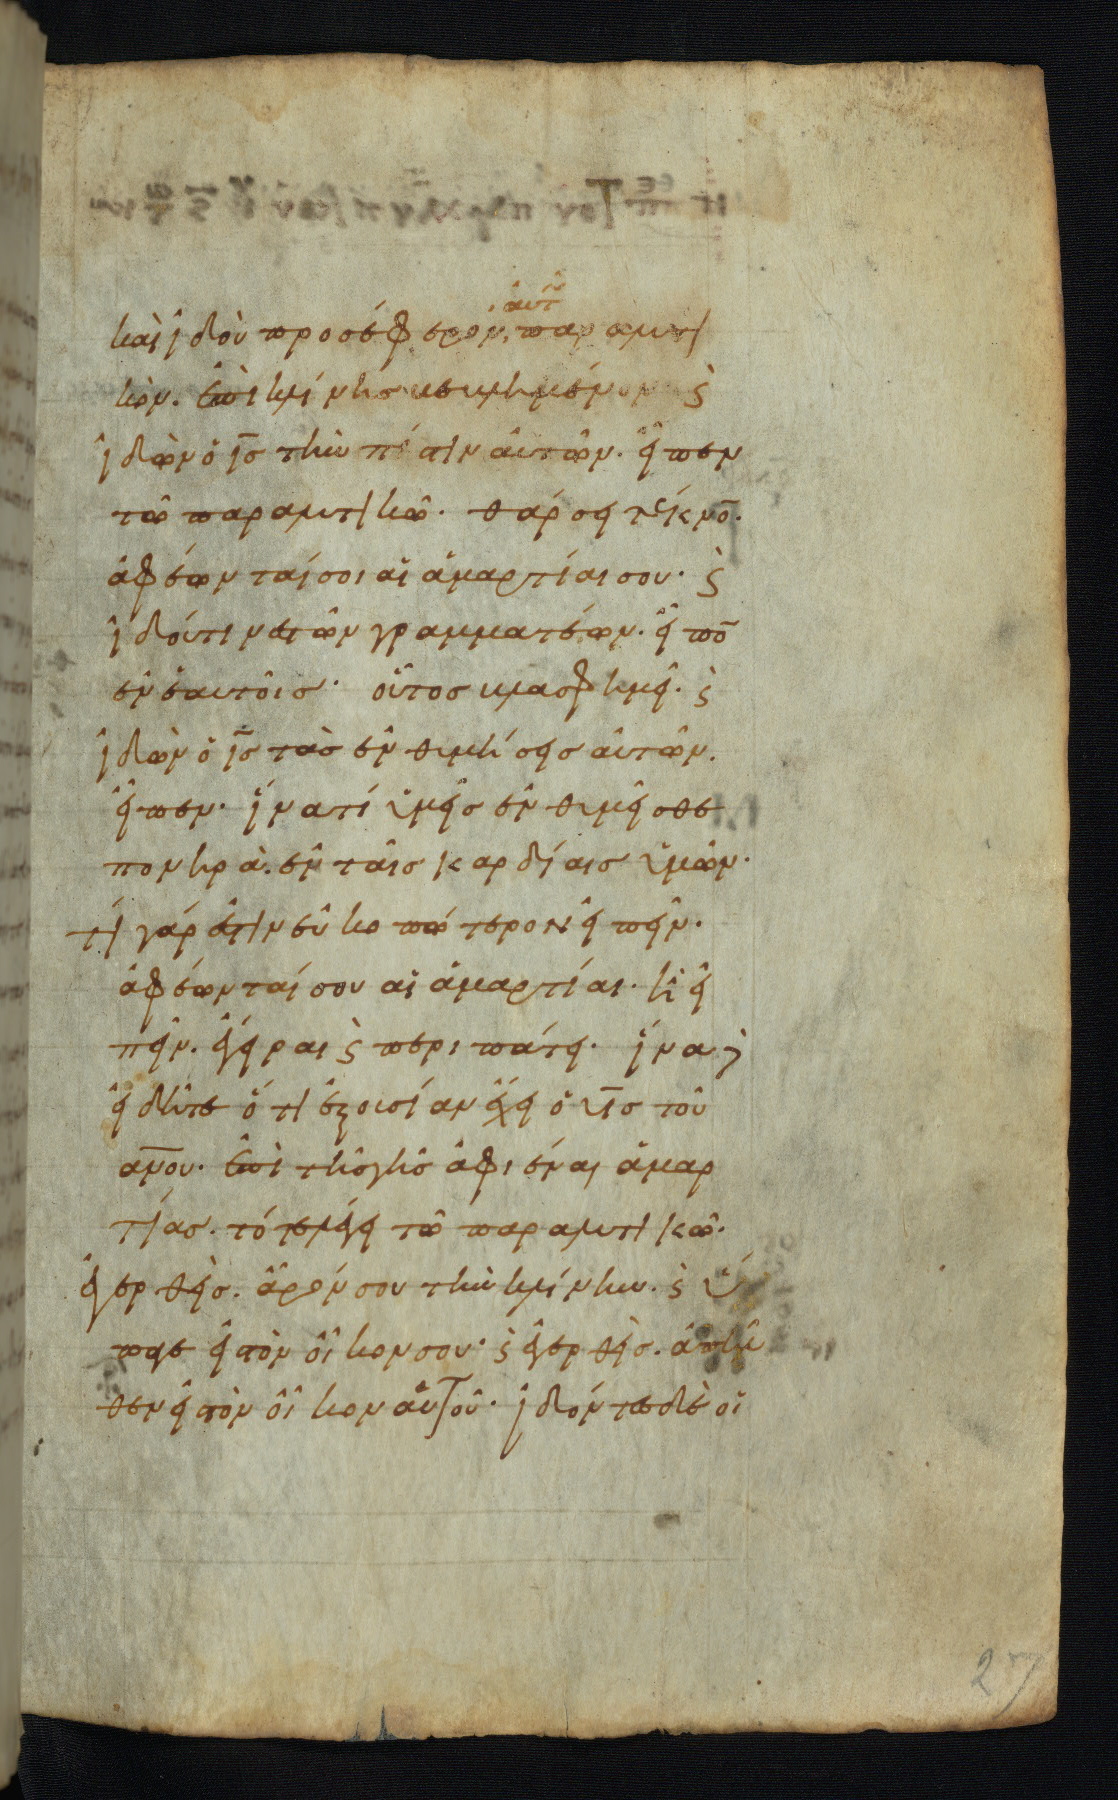 αὐτῶ
καὶ ἰδοὺ προσέφερον, παραλυτι
κὸν. ἐπὶ κλίνησ βεβλημένον ϛ
ἰδὼν ὁ ις̅ τὴν πίστιν αὐτῶν. εἶπεν
τῶ παραλυτικῶ. θάρσει τέκνο̅.
ἀφέωνταί σοι αἱ ἁμαρτίαι σου· ϛ
ἰδού τινες τῶν γραμματέων. εἶπο̅
ἐν ἑαυτοῖσ· οὗτοσ βλασφημεῖ. ϛ
ἰδὼν ὁ ις̅ τὰσ ἐνθυμήσεισ αὐτῶν.
εἶπεν· ἵνατί ὑμεῖσ ἐνθυμεῖσθε
πονηρὰ. ἐν ταῖσ καρδίαισ ὑμῶν·
τί γάρ ἐστιν εὐκοπώτερον εἰπεῖν.
ἀφέωνταί σου αἱ ἁμαρτίαι· ἢ εἰ
πεῖν. ἔγειραι ϛ περιπάτει· ἵνα δὲ
εἰδῆτε ὅτι ἐξουσίαν ἔχει ὁ υς̅ τοῦ
ανου̅. ἐπὶ τῆσ γῆσ ἀφιέναι ἁμαρ
τίασ. τότε λέγει τῶ παραλυτικῶ.
ἐγερθεὶσ. ἆρόν σου τὴν κλίνην. ϛ ὕ
παγε εἰστὸν οἶκον σου· ϛ ἐγερθεὶσ. ἀπῆλ
θεν εἰστὸν οἶκον αὐτοῦ· ἰδόντεσ δὲ οἱ
27